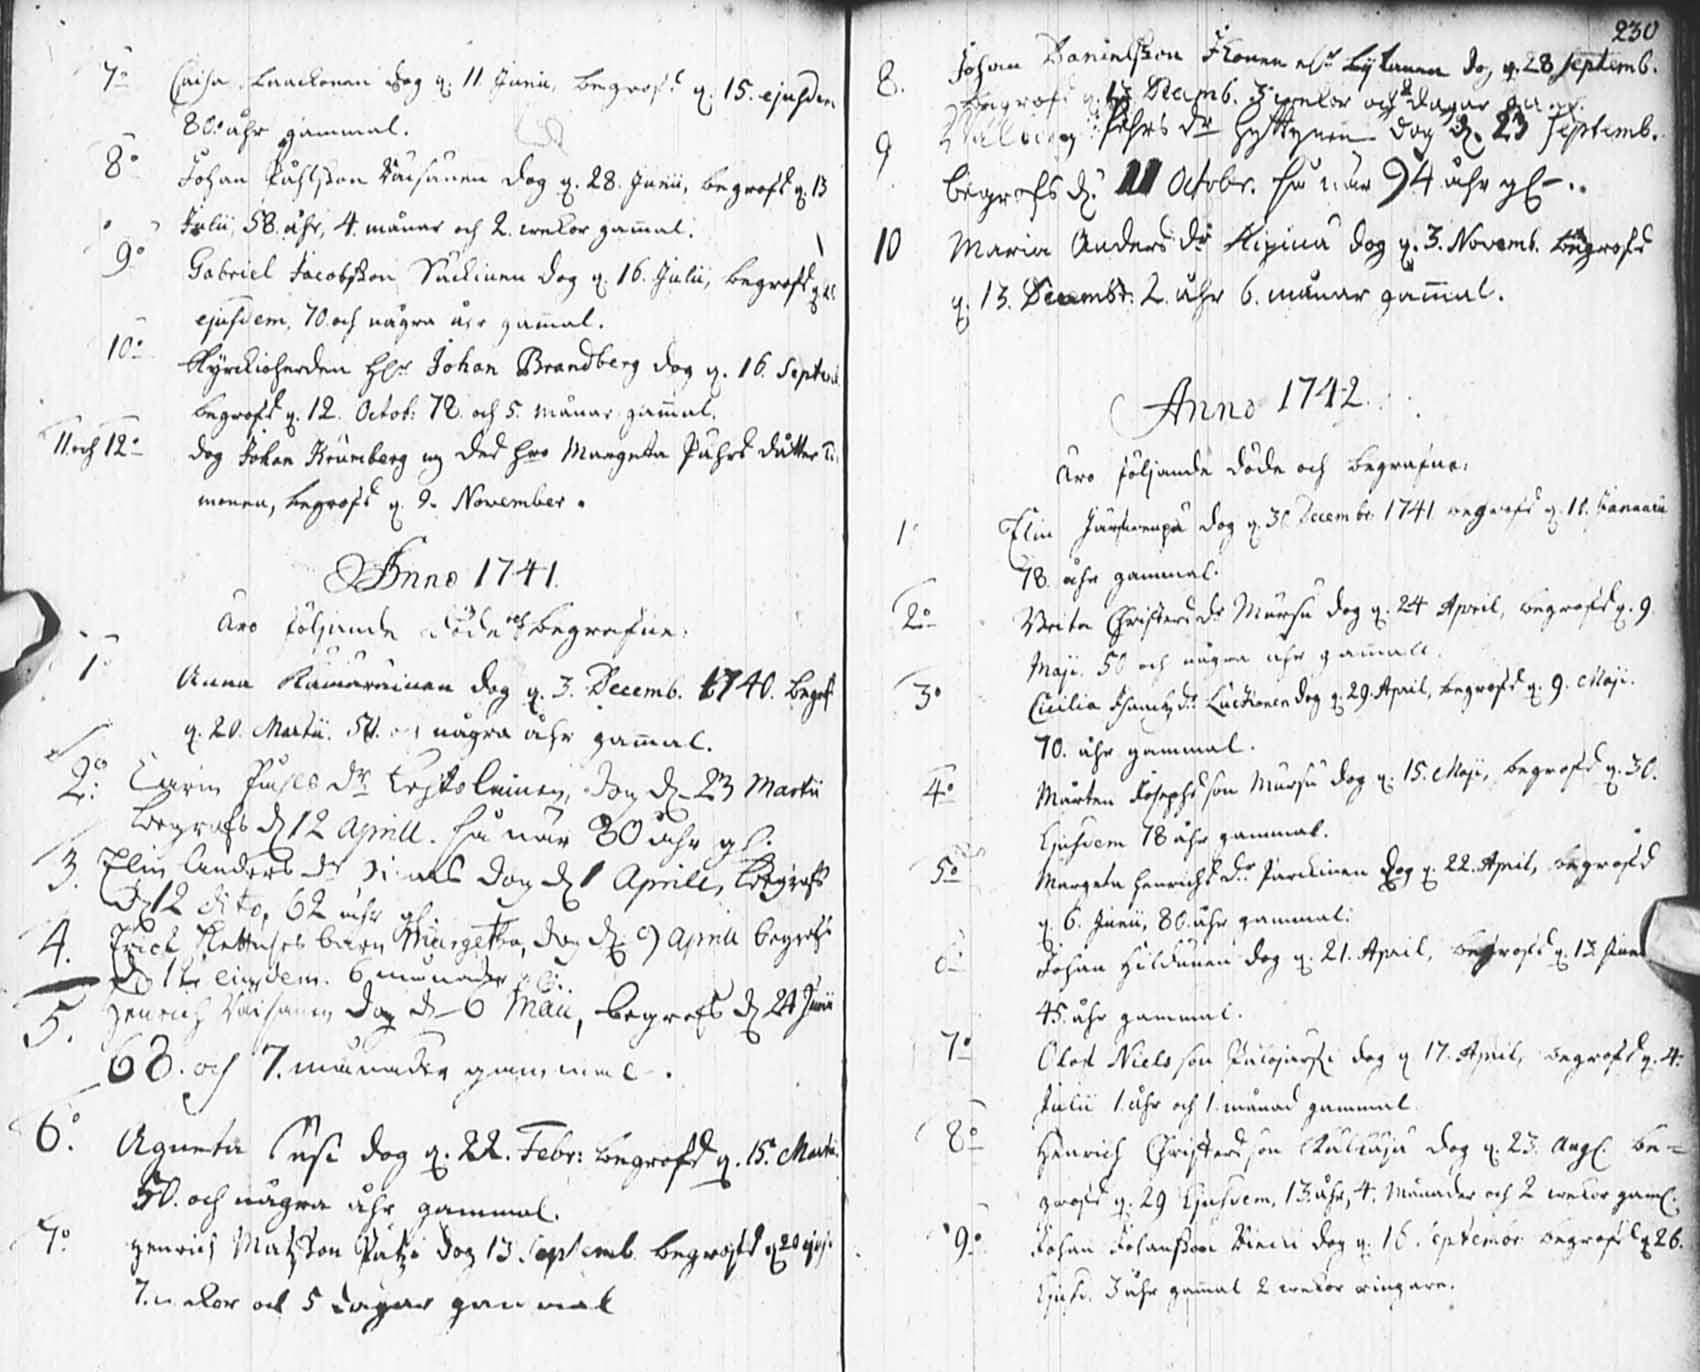 7o Caisa Laackonen dog d. 11 Junii, begrofs d. 15. ejusdem
80. åhr gammal.
8o Johan Påhlsson Väisänen dog d. 28. Junii, begrofs d. 13
Julii, 58. åhr, 4. månar och 2. wekor gamal.
9o Gabriel Jacobsson dog d. 16. Julii, begrofs d.
ejusdem, 70. och några åhr gamal.
10o Kyrckioherden Johan Brandberg dog d. 16. Septemb.
begrofs d. 12. Octob: 78. och 5. månar gamal.
11. och 12o dog Johan Krumberg og des hro Margeta Påhrs dåtter
monen, begrofs d. 9. November.
Anno 1741.
äro följande döde och begrafne:
1o Anna Kämäräinen dog d. 3. Decemb. 1740. begrofs
d. 20. Martii. 50. och några åhr gamal.
2o: Carin dr dog d. 23 Martii
Begrofs d 12 Aprill. hå når 80 åhr gl.
3. Elin Anders dr dog d 1 Aprill, Begrofs
d 12 dito, 62 åhr gl.
4. Erich barn Margetha, dog d. 9 Aprill begrofs
d 12 eiusdem. 6 månader gl.
5. Henrich Väisänen dog d 6 Maii, begrofs d 24 Junii
68. och 7. månader gammal.
6o. Agneta Susi dog d. 22. Febr: begrofs d. 15. Martii
50. och några åhr gammal.
7o Henrich Matsson dog 13. Septemb. begrofs d 20 ejus.
7. wekor och 5 dagar gammal
230
8. Johan Danielsson dog d. 28 Septemb.
begrofs d. 13 Decemb. 3 wekor och dagar gam.
9 Valborg Påhrs dr Hyttynen dog d. 23 Septemb.
begrofs d. 11 Octobr. hå når 94 åhr gl.
10 Maria Anders dr Kipinä dog d. 3. Novemb. begrofs
d. 13. Decembr: 2. åhr 6. månar gamal.
Anno 1742.
äro följande döde och begrafne:
1o Elin Järwenpä dog d. 30 Decembr 1741 begrofs d. 10. Januarii
78. åhr gammal.
2o Brita Christers dr Mursu dog d. 24 April, begrofs d. 9.
Maji. 50 och några åhr gamall.
3o Cicilia dr Luckonen dog d. 29. April, begrofs d. 9. Maji.
70. åhr gammal.
4o Mårten Josephsson Mursu dog d. 15. Maji, begrofs d. 30.
Ejusdem 78 åhr gammal.
5o Margeta Henrichs dr Parckinen dog d. 22. April, begrofs
d. 6. Junii, 80. åhr gammal.
6o Johan Hildunen dog d. 21. April, begrofs d. 13. Junii
45. åhr gammal.
7o Olof Nielsson dog d 17. April, begrofs d. 4.
Julii 1. åhr och 1. månad gammal
8o Henrich Christersson dog d. 23. Aug. be=
grofs d. 29 Ejusdem, 13. åhr, 4. Månader och 2 wekor gaml.
9o Johan Johansson dog d. 16. Septembr begrofs d 26.
Ejusd. 3 åhr gamal 2 wekor ringare.